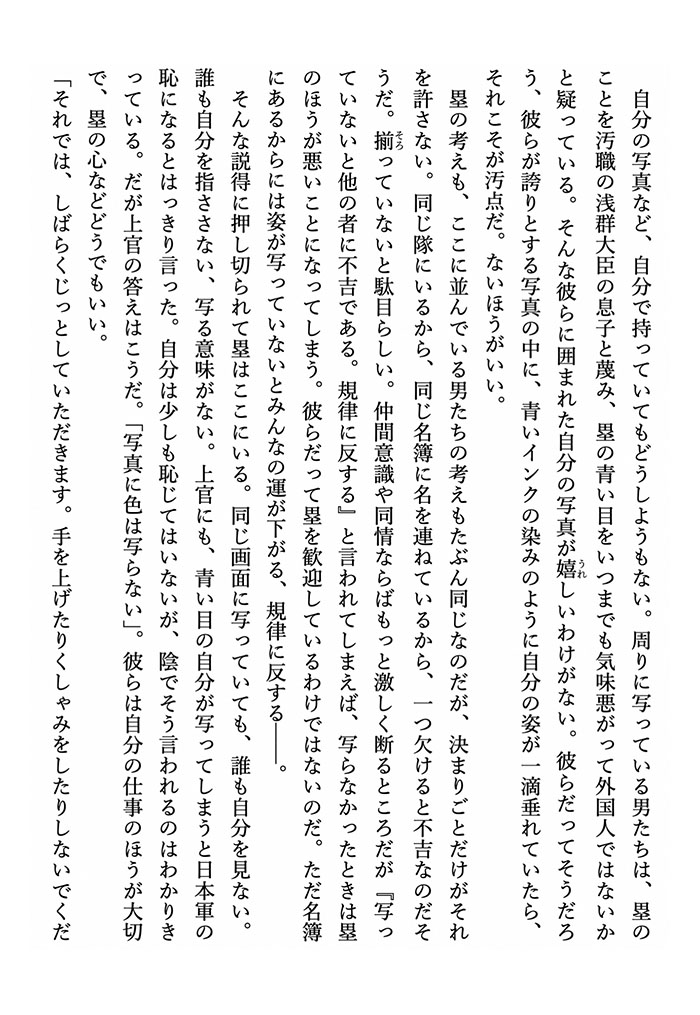 自分の写真など、自分で持っていてもどうしようもない。周りに写っている男たちは、塁の
ことを汚職の浅群大臣の息子と蔑み、塁の青い目をいつまでも気味悪がって外国人ではないか
と疑っている。そんな彼らに囲まれた自分の写真が嬉しいわけがない。彼らだってそうだろ
う、彼らが誇りとする写真の中に、青いインクの染みのように自分の姿が一滴垂れていたら、
それこそが汚点だ。ないほうがいい。
　塁の考えも、ここに並んでいる男たちの考えもたぶん同じなのだが、決まりごとだけがそれ
を許さない。同じ隊にいるから、同じ名簿に名を連ねているから、一つ欠けると不吉なのだそ
うだ。揃っていないと駄目らしい。仲間意識や同情ならばもっと激しく断るところだが『写っ
ていないと他の者に不吉である。規律に反する』と言われてしまえば、写らなかったときは塁
のほうが悪いことになってしまう。彼らだって塁を歓迎しているわけではないのだ。ただ名簿
にあるからには姿が写っていないとみんなの運が下がる、規律に反する――。
　そんな説得に押し切られて塁はここにいる。同じ画面に写っていても、誰も自分を見ない。
誰も自分を指ささない、写る意味がない。上官にも、青い目の自分が写ってしまうと日本軍の
恥になるとはっきり言った。自分は少しも恥じてはいないが、陰でそう言われるのはわかりき
っている。だが上官の答えはこうだ。「写真に色は写らない」。彼らは自分の仕事のほうが大切
で、塁の心などどうでもいい。
「それでは、しばらくじっとしていただきます。手を上げたりくしゃみをしたりしないでくだ